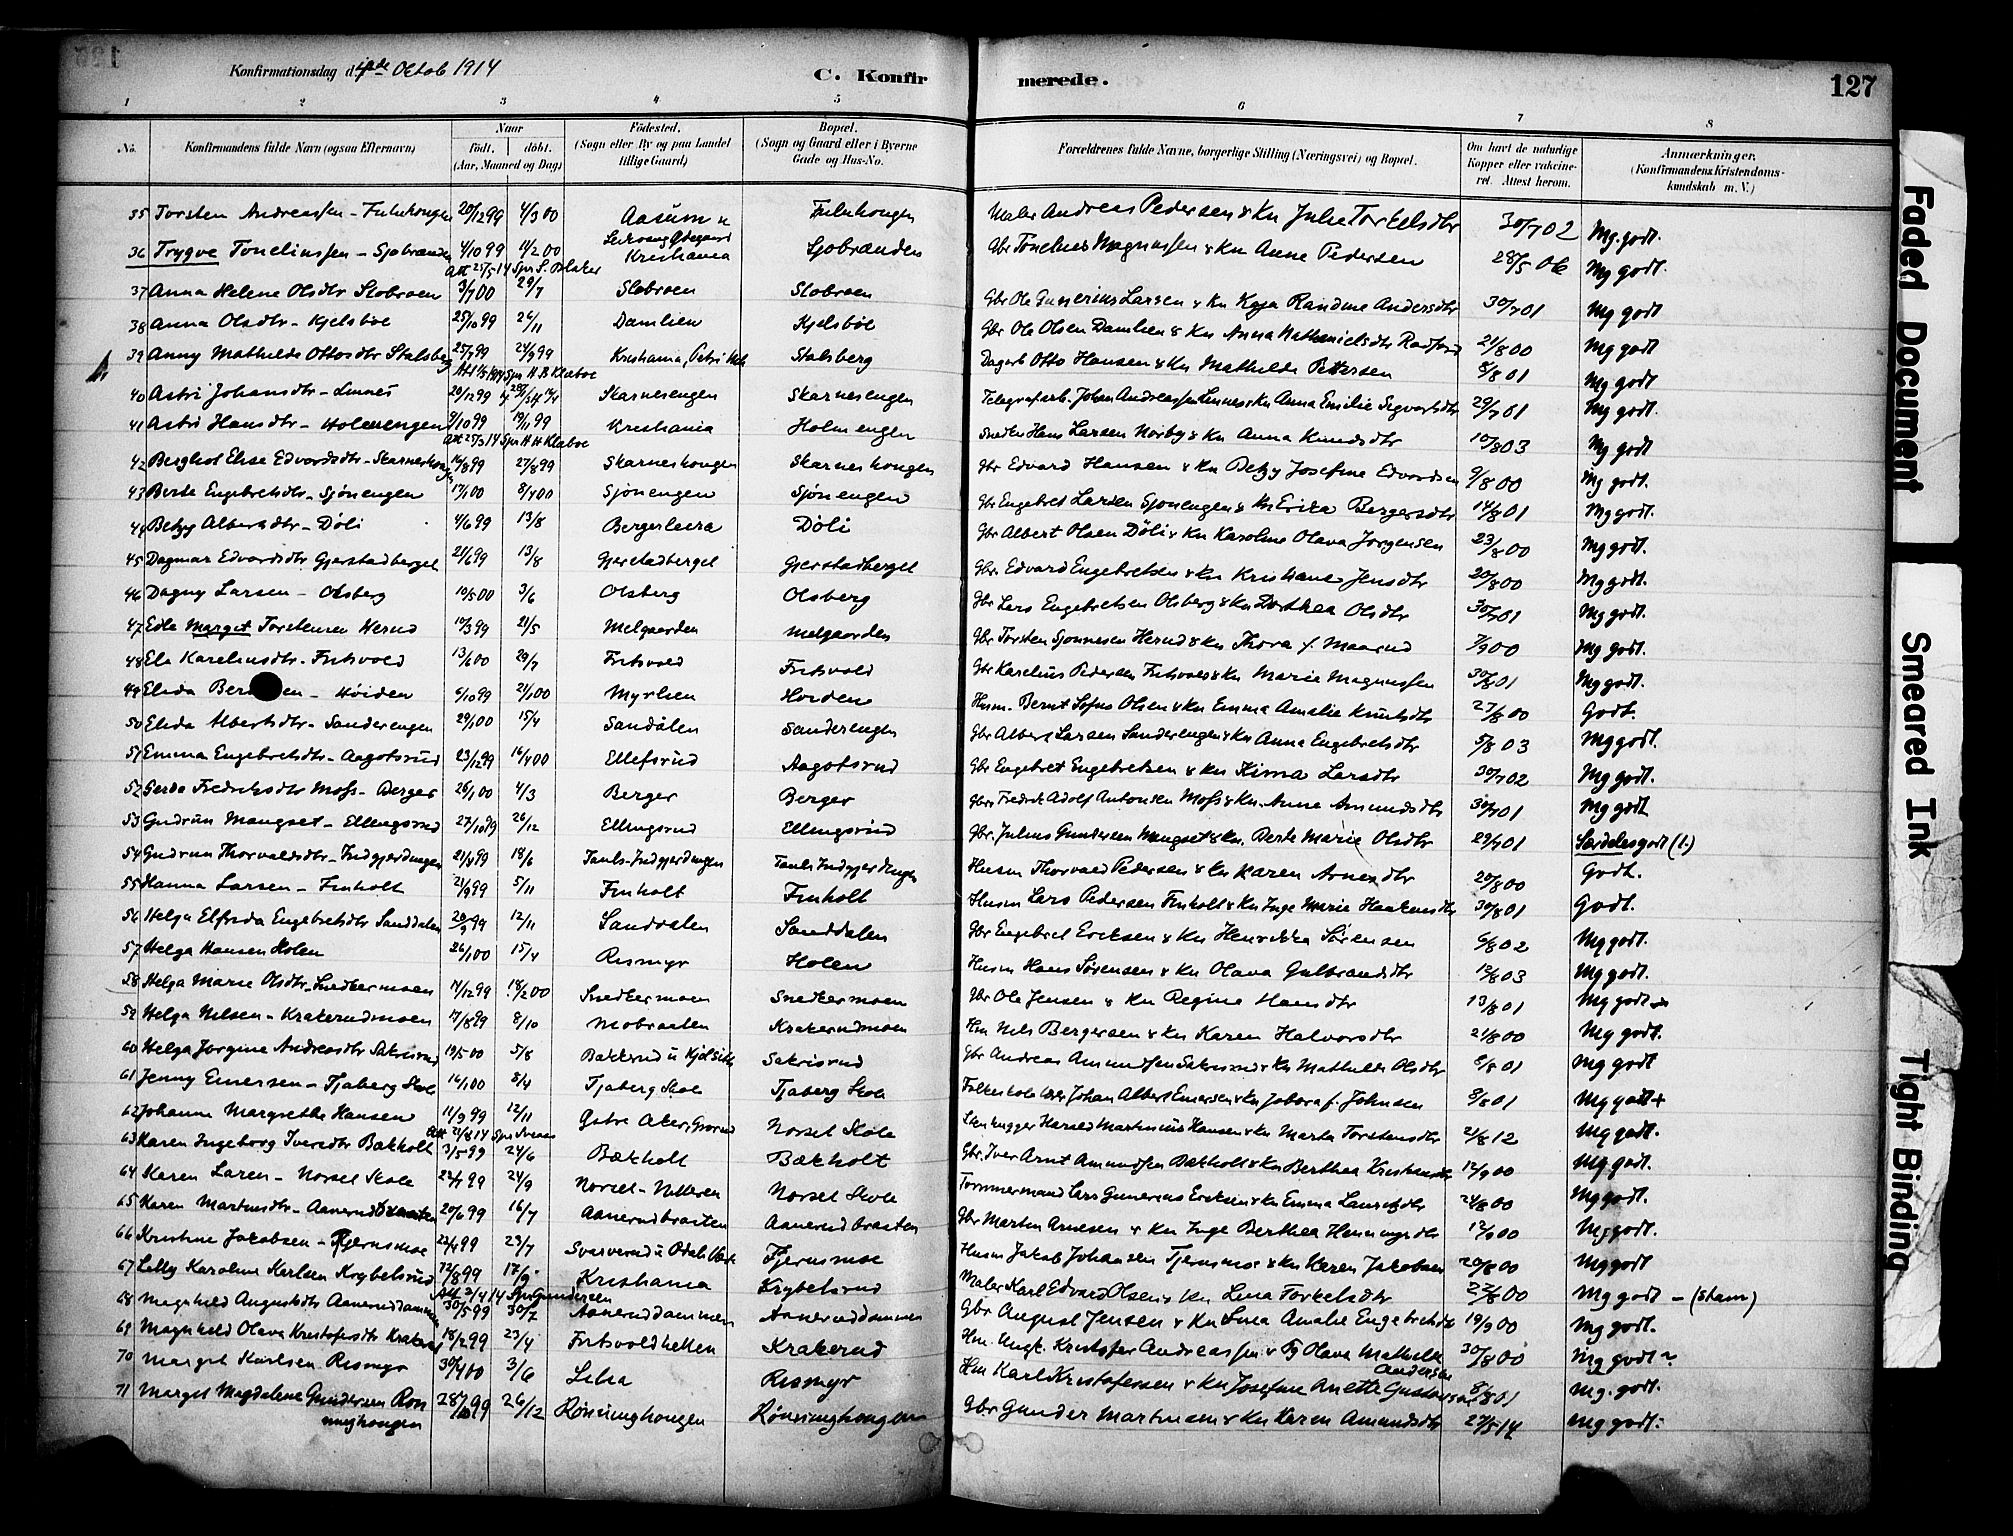 Konfirmationsdag d. 4de Oktob 1914
C. Konfir
merede.
127
1 2 3 4 5 6 7 8
No. Konfirmandens fulde Navn (ogsaa Efternavn) Naar Födt. döbt. (Aar, Maaned og Dag) Födested. (Sogn eller By og paa Landet tillige Gaard) Bopæl. (Sogn og Gaard eller i Byerne Gade og Hus-No. Forældrenes fulde Navne, borgerlige Stilling (Næringsvei) og Bopæl. Om havt de naturlige Kopper eller vakcineret. Attest herom. Anmærkninger. (Konfirmandens Kristendomskundskab m. V.)
35 Torsten Andreassen - Fuluhaugen 20/12 99 4/3 00 Aasum u Fuluhaugen Maler Andreas Pedersen & Kn Julie Torkelsdtr 30/7 02 Mg. godt.
36 Trygve Tonelinssen - Sjobranden 4/10 99 11/2 00 Kristiania Sjobranden Gbr Tonelius Magnussen & Kn Anne Pedersen 28/5 06 Mg godt.
37 Anna Helene Olsdtr Slobraen 3/7 00 29/7 Slobraen Slobraen Gbr Ole Gunerius Larsen & Kn Kaja Randine Andersdtr 30/7 01 Mg godt
38 Anna Olsdtr - Kjelsböe 25/10 99 26/11 Damlien Kjelsböe Gbr Ole Olsen Damlien & Kn Anna 21/8 00 Mg godt
39 Anny Mathilde Ottosdtr Stalsberg 25/7 99 24/9 99 Kristiania, Petri Stalsberg Dagarb Otto Hansen & Kn Mathilde Pettersen 8/8 01 Mg godt
40 Astri Johansdtr - Linnes 20/12 99 Skarnesengen Skarnesengen Telegrafarb. Johan Andreassen Linnes & Kn Anna Emilie Sigvartsdtr 29/7 01 Mg godt.
41 Astri Hansdtr - Holmengen 9/10 99 19/11 99 Kristiania Holmengen Snedker Hans Larsen Norby & Kn Anna Knudsdtr 10/8 03 Mg godt
42 Berghot Elise Edvardsdtr - Skarneshaugen 16/8 99 27/8 99 Skarneshaugen Skarneshaugen Gbr Edvard Hansen & Kn Betzy Josefine Edvardsen 9/8 00 Mg godt.
43 Berte Engebretsdtr - Sjönengen 17/1 00 8/4 00 Sjönengen Sjönengen Gbr Engebret Larsen Sjonengen & Kn Erika Bergersdtr 14/8 01 Mg godt.
44 Betzy Albertsdtr - Döli 4/6 99 13/8 Bergerleira Döli Gbr Albert Olsen Döli & Kn Karoline Olava Jorgensen 23/8 00 Mg godt.
45 Dagmar Edvardsdtr Gjerstadberget 21/6 99 13/8 Gjerstadberget Gjerstadberget Gbr. Edvard Engebretsen & Kn Kristiane Jensdtr 20/8 00 Mg godt.
46 Dagny Larsen - Olsberg 10/5 00 3/6 Olsberg Olsberg Gbr Lars Engebretsen Olsberg & Kn Dorthea Olsdtr 30/7 01 Mg godt.
47 Edle Margit Torstensen Hernd 10/3 99 21/5 Melgaarden Melgaarden Gbr Torsten Sjonnesen Hernd & Kn Thora f. Maarud 7/9 00 Mg godt.
48 Ela Kareliusdtr - Fritsvold 13/6 00 29/7 Fritsvold Fritsvold Gbr Karelius Pedersen Fritsvold & Kn Marie Magnussen 30/8 01 Mg godt.
49 Elida Ber en - Höiden 6/10 99 21/1 00 Myrlien Hoiden Husm. Bernt Sofus Olsen & Kn Emma Amalie Knutsdtr 27/8 00 Godt.
50 Elida Albertsdtr - Sanderengen 29/1 00 15/4 Sandalen Sanderengen Gbr Albert Larsen Sanderengen & Kn Anna Engebretsdtr 5/8 03 Mg godt.
51 Emma Engebretsdtr - Aagotsrud 23/12 99 16/4 00 Ellefsrud Aagotsrud Gbr Engebret Engebretsen & Kn Kirna Larsdtr 30/7 02 Mg godt.
52 Gerda Fredriksdtr Moss - Berger 26/1 00 4/3 Berger Berger Gbr. Fredrik Adolf Antonsen Moss & Kn. Anne Amundsdtr 30/7 01 Mg godt
53 Gudrun Mangset - Ellingsrud 27/10 99 26/12 Ellingsrud Ellingsrud Gbr. Julius Gundersen Mangset & Kn. Berte Marie Olsdtr 29/7 01 Særdeles godt (1.)
54 Gudrun Thorvaldsdtr - Indgjerdingen 21/4 99 18/6 Tauls-Indgjerdingen Tauls Indgjerdingen Husm Thorvald Pedersen & Kn Karen Arnesdtr 20/8 00 Godt.
55 Hanna Larsen - Finholt 21/9 99 5/11 Finholt Finholt Husm Lars Pedersen Finholt & Kn Inge Marie Haakensdtr 30/8 01 Godt.
56 Helga Elfrida Engebretsdtr Sanddalen 20/9 99 12/11 Sanddalen Sanddalen Gbr Engebret Ericksen & Kn Henrikka Sörensen 6/8 02 Mg godt.
57 Helga Hansen Holen 26/1 00 15/4 Rismyr Holen Husm Hans Sörensen & Kn Olava Gulbrandsdtr 12/8 03 Mg godt.
58 Helga Marie Olsdtr - Snedkermoen 17/12 99 18/2 00 Snedkermoen Snedkermoen Gbr Ole Jensen & Kn Regine Hansdtr 13/8 01 Mg godt
59 Helga Nilsen - Krakerudmoen 17/8 99 8/10 Mobraaten Krakerudmoen Hm Nils Bergersen & Kn Karen Halvorsdtr 21/8 00 Mg godt.
60 Helga Jorgine Andreasdtr Sakrisrud 19/5 00 5/8 Bakkerud u Sakrisrud Gbr Andreas Amundsen Sakrisrud & Kn Mathilde Olsdtr 8/8 01 Mg godt
61 Jenny Einersen - Tjaberg Skole 14/1 00 8/4 Tjaberg Skole Tjaberg Skole Folkeskolelærer Johan Albert Einersen & Kn Jobara f. Johnsen 8/8 01 Mg godt +
62 Johanne Margrethe Hansen 11/9 99 12/11 Östre Aker, Grorud Norsel Skole Stenhugger Harald Martinius Hansen & Kn Marta Torstensdtr 21/8 12 Mg godt.
63 Karen Ingeborg Iversdtr Bakholt 3/5 99 24/6 Bækholt Bækholt Gbr. Iver Arnt Amundsen Bakholt & Kn Berthea Kristiansdtr 12/9 00 Mg godt.
64 Karen Laren - Norsel Skole 22/7 99 24/9 Norsel-Nitteren Norsel Skole Tommermand Lars Gunerius Ericksen & Kn Emma Lauritsdtr 24/8 00 Mg godt.
65 Karen Martinsdtr - Aanerudbraaten 20/6 99 16/7 Aanerudbraaten Aanerudbraaten Gbr Martin Arnesen & Kn Inge Berthea Henningsdtr 12/9 00 Mg godt.
66 Kristine Jakobsen - Fjernsmoe 22/4 99 23/7 Sværverud u Odals Værk Fjernsmoe Husm Jakob Johansen Fjernsmoe & Kn Karen Jakobsen 20/8 00 Mg godt
67 Lilly Karoline Karlsen Krybelsrud 12/8 99 17/9 Kristiania Krybelsrud Maler Karl Edvard Olsen & Kn Lina Torkelsdtr 27/8 00 Mg godt - (stam)
68 Magnhild Augustsdtr Aanerud dammen 30/5 99 30/7 Aaneruddammen Aaneruddammen Gbr August Jensen & Kn Lina Amalie Engebretsdtr 19/9 00 Mg godt.
69 Magnhild Olava Kristofersdtr Krakerud 18/2 99 23/4 Fritsvoldhelten Krakerud Hm. Ungk. Kristofer Andreassen & Pg Olava Mathilde Andersen 30/8 00 Mg godt
70 Margit Karlsen Rismyr 30/4 00 3/6 Rismyr Hm Karl Kristofersen & Kn Josefine Anette Gustavsen 8/8 01 Mg. godt.
71 Margit Magdalene Gundersen Ron
ninghougen 28/10 99 26/12 Rönninghougen Rönninghougen Gbr Gunder Martinsen & Kn Karen Amundsdtr 27/5 14 Mg godt.
Faded Document
Smeared Ink
Tight Binding